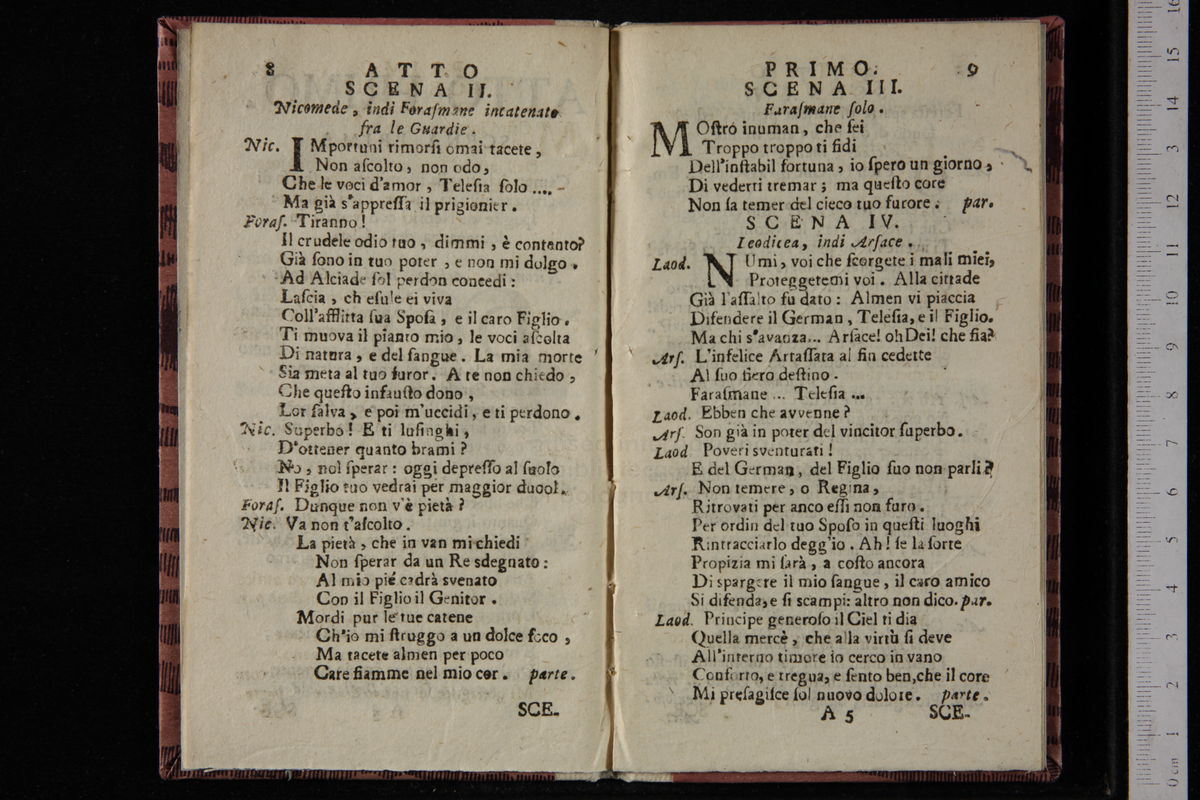 8 ATTO
SCENA II.
Nicomede, indi Foraſmane incatenato
fra le Guardie.
Nic. IMportuni rimorſi omai tacete,
Non aſcolto, non odo,
Che le voci d'amor, Teleſia ſolo ....
Ma già s'appreſſa il prigionier.
Foraſ. Tiranno!
Il crudele odio tuo, dimmi, è contento?
Già ſono in tuo poter, e non mi dolgo.
Ad Alciade ſol perdon concedi:
Laſcia, ch eſule ei viva
Coll'afflitta ſua Spoſa, e il caro Figlio.
Ti muova il pianto mio, le voci aſcolta
Di natura, e del ſangue. La mia morte
Sia meta al tuo furor. A te non chiedo,
Che queſto infauſto dono,
Lor ſalva, e poi m'uccidi, e ti perdono.
Nic. Superbo! E ti luſinghi,
D'ottener quanto brami?
No, nol ſperar: oggi depreſſo al ſuolo
Il Figlio tuo vedrai per maggior duool.
Foraſ. Dunque non v'è pietà?
Nic. Va non t'aſcolto.
La pietà, che in van mi chiedi
Non ſperar da un Re sdegnato:
Al mio piè cadrà svenato
Con il Figlio il Genitor.
Mordi pur le tue catene
Ch'io mi ſtruggo a un dolce foco,
Ma tacete almen per poco
Care fiamme nel mio cor. parte.
SCE-
PRIMO. 9
SCENA III.
Faraſmane ſolo.
MOſtro inuman, che ſei
Troppo troppo ti fidi
Dell'inſtabil fortuna, io ſpero un giorno,
Di vederti tremar; ma queſto core
Non ſa temer del cieco tuo furore. par.
SCENA IV.
Leodicea, indi Arſace.
Laod. NUmi, voi che ſcorgete i mali miei,
Proteggetemi voi. Alla cittade
Già l'aſſalto fu dato: Almen vi piaccia
Difendere il German, Teleſia, e il Figlio.
Ma chi s'avanza... Arſace! oh Dei! che fia?
Arſ. L'infelice Artaſſata al fin cedette
Al ſuo fiero deſtino.
Faraſmane ... Teleſia ...
Laod. Ebben che avvenne?
Arſ. Son già in poter del vincitor ſuperbo.
Laod Poveri sventurati!
E del German, del Figlio ſuo non parli?
Arſ. Non temere, o Regina,
Ritrovati per anco eſſi non furo.
Per ordin del tuo Spoſo in queſti luoghi
Rintracciarlo degg'io. Ah! ſe la ſorte
Propizia mi ſarà, a coſto ancora
Di spargere il mio ſangue, il caro amico
Si difenda, e ſi scampi: altro non dico. par.
Laod. Principe generoſo il Ciel ti dia
Quella mercè, che alla virtù ſi deve
All'interno timore io cerco in vano
Conforto, e tregua, e ſento ben, che il core
Mi preſagiſce ſol nuovo dolore. parte.
A 5 SCE-